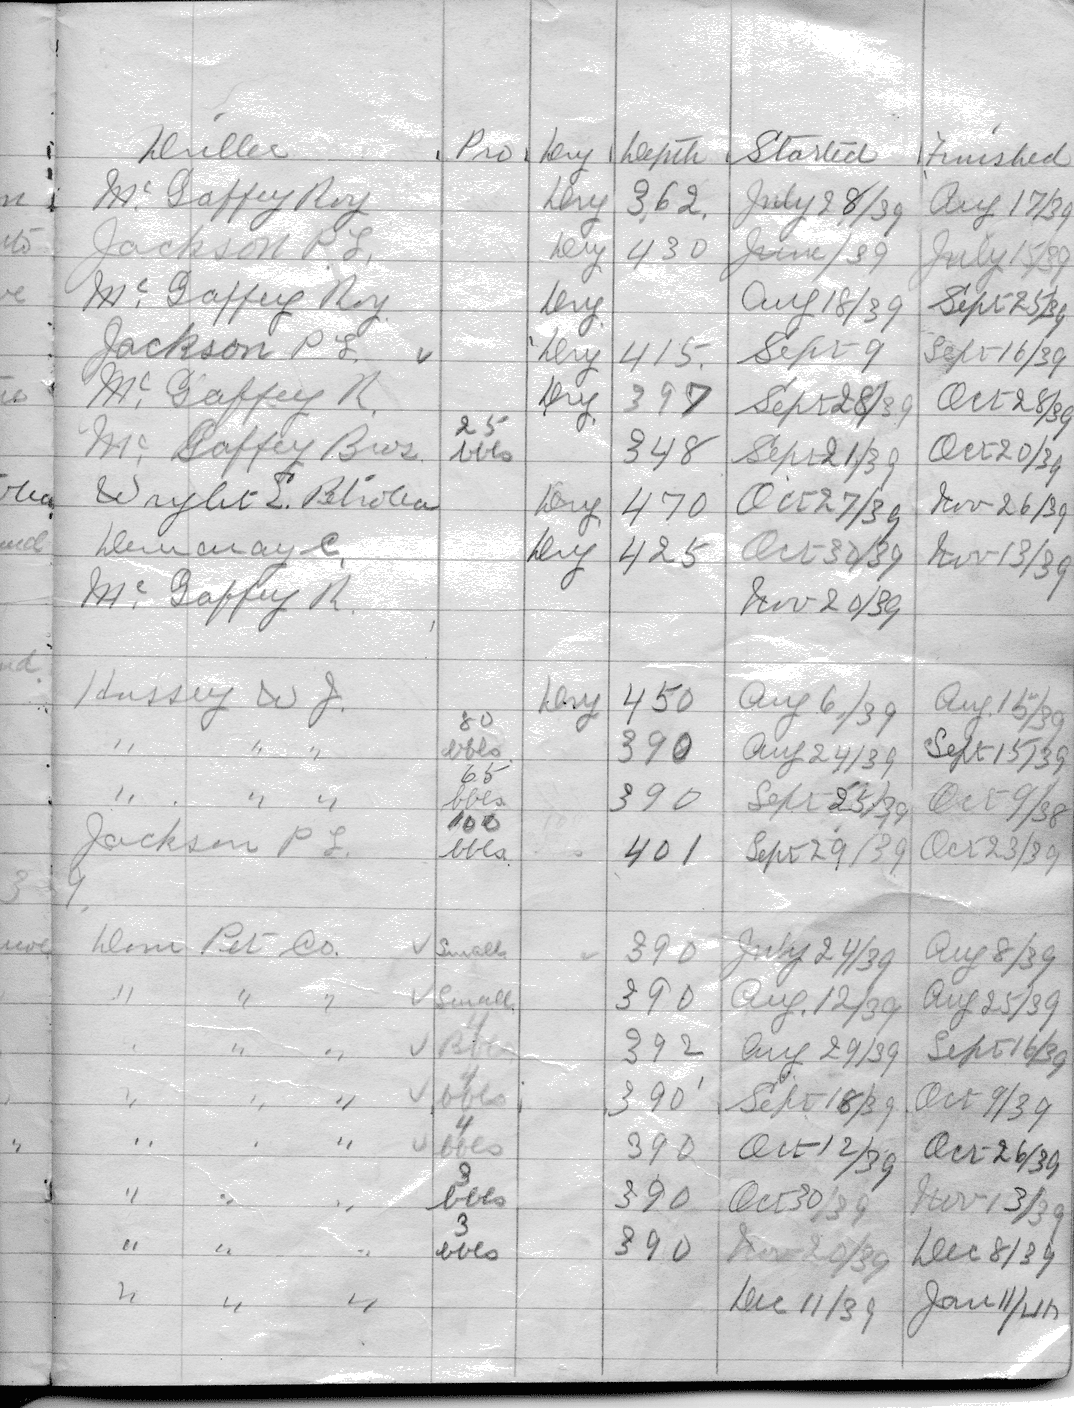 Driller Pro Dry Depth Started Finished
Mc. Gaffey Roy Dry 362. July 28/39 Aug 17/39
Jackson P.L. Dry 430 June/39 July 15/39
Mc. Gaffey Roy Dry Aug 18/39 Sept 25/39
Jackson P L. ✓ Dry 415. Sept 9 Sept 16/39
Mc. Gaffey R. Dry 397 Sept 28/39 Oct 28/39
Mc. Gaffey Bros. 25 bbls 348 Sept 21/39 Oct 20/39
Wright Dry 470 Oct 27/39 Nov 26/39
C. Dry 425 Oct 30/39 Nov 13/39
Mc. Gaffey R. Nov 20/39
Hussey W J. Dry 450 Aug 6/39 Aug. 15/39
" " " 80 bbls. 390 Aug 24/39 Sept 15/39
" " " 65 bbls 390 Sept 25/39 Oct 9/38
Jackson P L. 100 bbls. 401 Sept 29/39 Oct 23/39
3 9.
Dom Pet Co. ✓ Small ✓ 390 July 24/39 Aug 8/39
" " " ✓ Small 390 Aug. 12/39 Aug 25/39
" " " ✓ 4 Bbls 392 Aug 29/39 Sept 16/39
" " " ✓ 4 bbls 390' Sept 18/39 Oct 9/39
" " " ✓ 4 bbls 390 Oct 12/39 Oct 26/39
" " " 3 bbls 390 Oct 30/39 Nov 13/39
" " " 3 bbls 390 Nov 20/39 Dec 8/39
" " " Dec 11/39 Jan 11/40